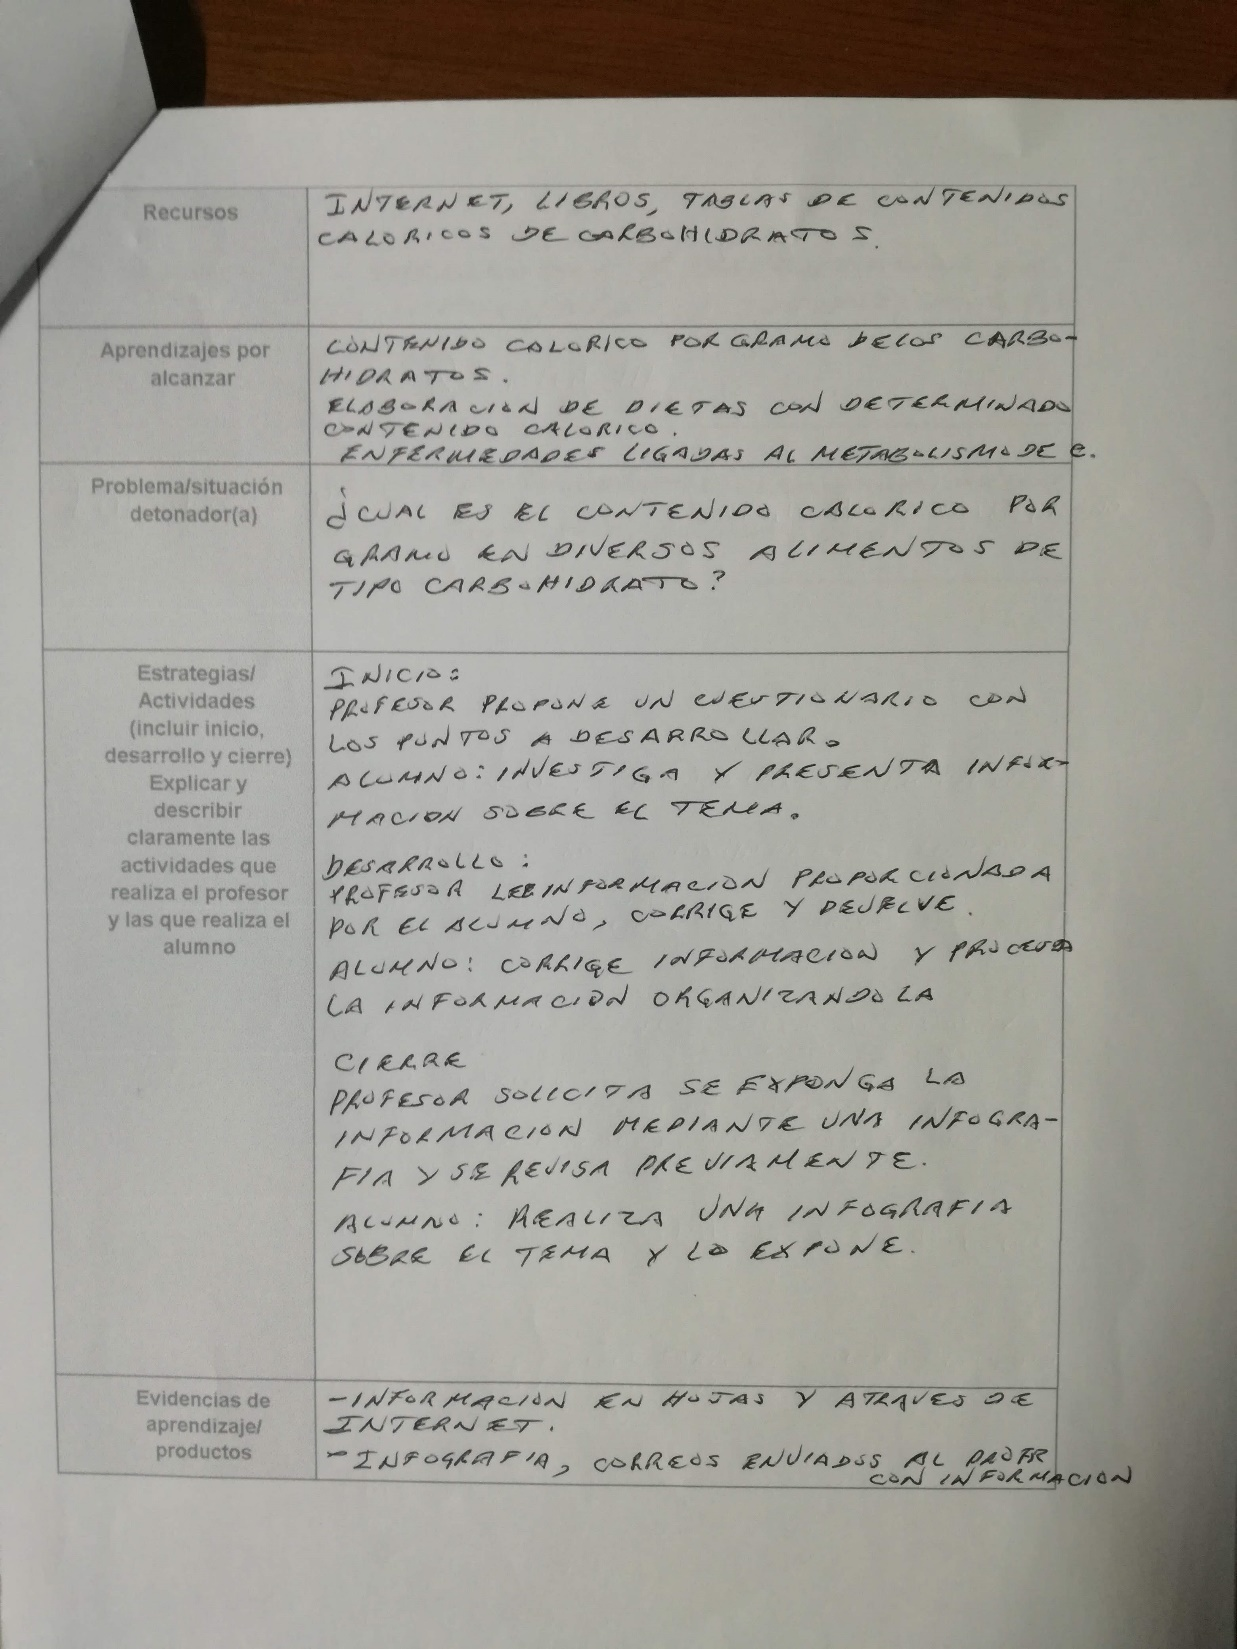 Recursos
INTERNET, LIBROS, TABLAS DE CONTENIDOS
CALORICOS DE CARBOHIDRATOS.
Aprendizajes por
alcanzar
CONTENIDO CALORICO POR GRAMO DE LOS CARBO-
HIDRATOS.
ELABORACION DE DIETAS CON DETERMINADO
CONTENIDO CALORICO.
ENFERMEDADES LIGADAS AL METABOLISMO DE C.
Problema/situación
detonador(a)
¿CUAL ES EL CONTENIDO CALORICO POR
GRAMO EN DIVERSOS ALIMENTOS DE
TIPO CARBOHIDRATO?
Estrategias/
Actividades
(incluir inicio,
desarrollo y cierre)
Explicar y
describir
claramente las
actividades que
realiza el profesor
y las que realiza el
alumno
INICIO:
PROFESOR PROPONE UN CUESTIONARIO CON
LOS PUNTOS A DESARROLLAR.
ALUMNO: INVESTIGA Y PRESENTA INFOR-
MACION SOBRE EL TEMA.
DESARROLLO:
PROFESOR LEE INFORMACION PROPORCIONADA
POR EL ALUMNO, CORRIGE Y DEVUELVE.
ALUMNO: CORRIGE INFORMACION Y PROCESA
LA INFORMACION ORGANIZANDO LA
CIERRE
PROFESOR SOLICITA SE EXPONGA LA
INFORMACION MEDIANTE UNA INFOGRA-
FIA Y SE REVISA PREVIAMENTE.
ALUMNO: REALIZA UNA INFOGRAFIA
SOBRE EL TEMA Y LO EXPONE.
Evidencias de
aprendizaje/
productos
-INFORMACION EN HOJAS Y ATRAVES DE
INTERNET.
-INFOGRAFIA, CORREOS ENVIADOS AL PROFR
CON INFORMACION